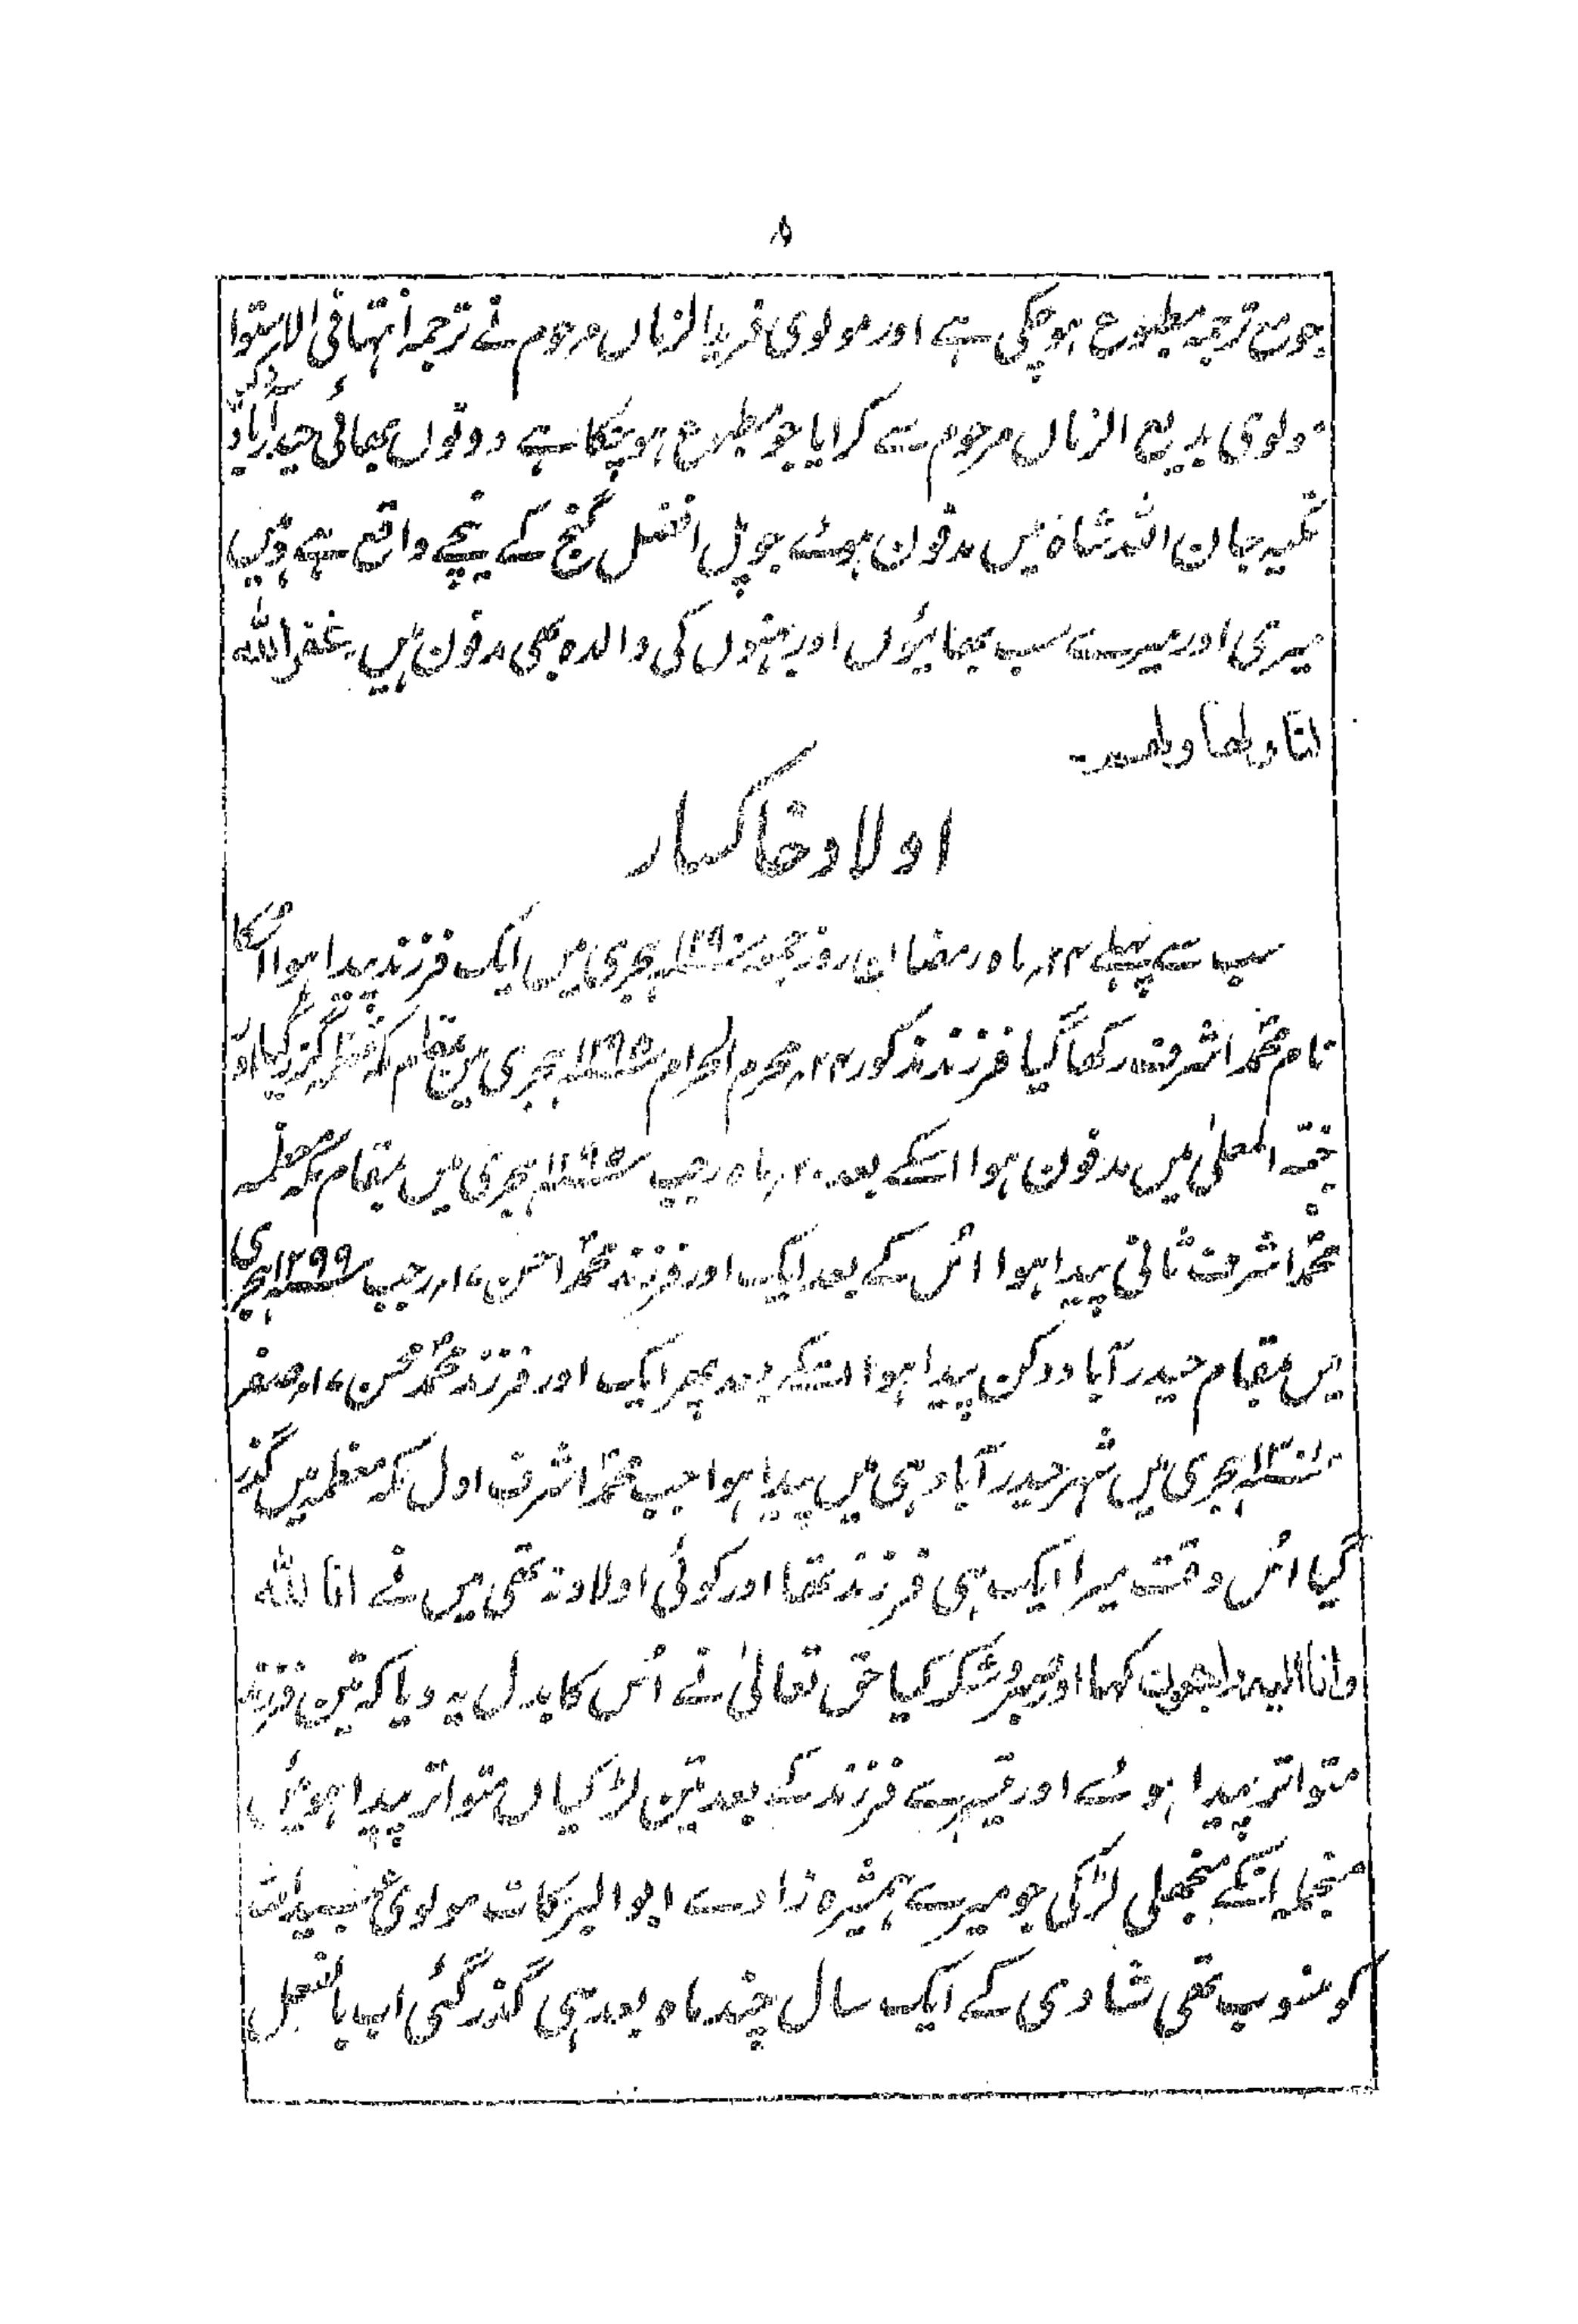 ۸
جو مع ترجمہ مطبوع ہوچکی ہے اور مولوی فرید الزماں مرحوم نے ترجمہ انتہا فی الاستوا
مولوی بدیع الزماں مرحوم سے کرایا جو مطبوع ہوچکا ہے دونوں بھائی حیدرآباد دکن
تکیہ جان اللہ شاہ میں مدفون ہوئے جو پل افضل گنج کے نیچے واقع ہے وہیں
میری اور میرے سب بھائیوں اور بہنوں کی والدہ بھی مدفون ہیں یغفر اللہ
لنا ولھا ولھم۔
اولاد خاکسار
سب سے پہلے ۲۴؍ ماہ رمضان روز جمعہ ۱۲۹۰ہجری میں ایک فرزند پیدا ہوا اسکا
نام محمد اشرف رکھا گیا فرزند مذکور ۲۴؍ محرم الحرام ۱۲۹۵ہجری میں بمقام مکہ معظمہ گزر گیا اور
جنۃ المعلیٰ میں مدفون ہوا اسکے بعد ۲۰؍ ماہ رجب ۱۲۹۵ہجری میں بمقام مکہ معظمہ
محمد اشرف ثانی پیدا ہوا اس کے بعد ایک اور فرزند محمد احسن ۱۷؍ رجب ۱۲۹۹ہجری
میں بمقام حیدرآباد دکن پیدا ہوا اسکے بعد پھر ایک اور فرزند محمد محسن ۱۷؍ صفر
ہجری میں شہر حیدرآباد ہی میں پیدا ہوا جب محمد اشرف اول مکہ معظمہ میں گذر
گیا اس وقت میرا ایک ہی فرزند تھا اور کوئی اولاد نہ تھی میں نے انا للہ
وانا الیہ راجعون کہا اور صبر و شکر کیا حق تعالیٰ نے اُس کا بدل یہ دیا کہ تین فرزند
متواتر پیدا ہوئے اور تیسرے فرزند کے بعد تین لڑکیاں متواتر پیدا ہوئیں
منجملہ انکے منجھلی لڑکی جو میرے ہمشیرہ زادے ابو البرکات مولوی عبید اللہ
کو منسوب تھی شادی کے ایک سال چند ماہ بعد ہی گذر گئی اب بالفعل